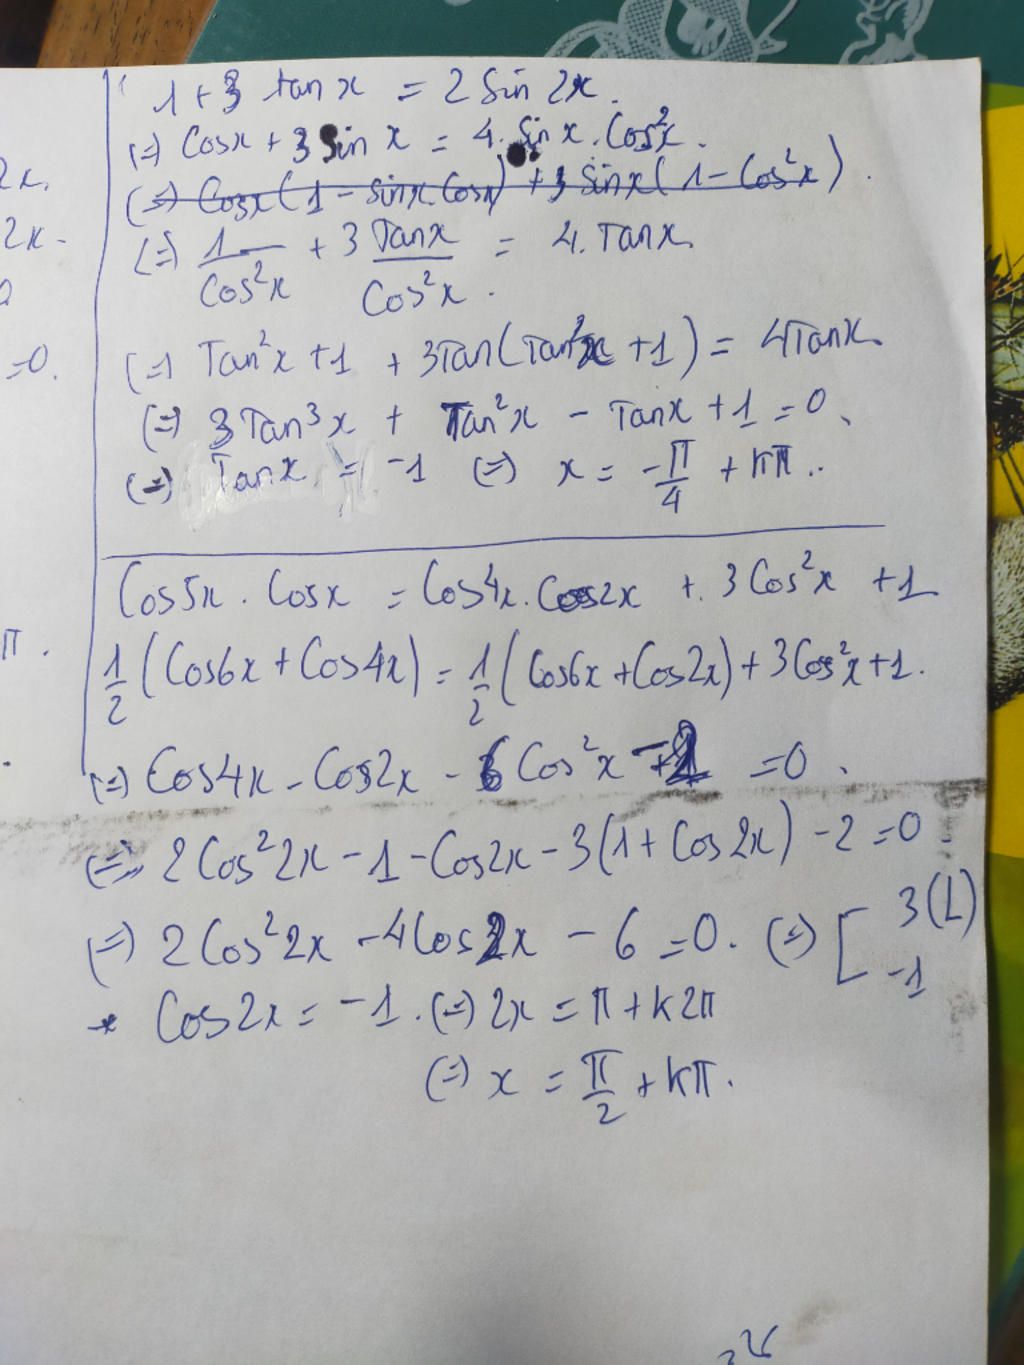 1 + 3 tan x = 2 Sin 2x.
(=) Cosx + 3 Sin x = 4. Sin x . Cos²x.
(=) Cosx(1 - sinx.Cosx) + 3 Sinx(1 - Cos²x).
2x.
2x -
(=) 1/Cos²x + 3 Tanx/Cos²x = 4. Tanx.
=0.
(=) Tan²x + 1 + 3Tan(Tan²x + 1) = 4Tanx.
(=) 3Tan³x + Tan²x - Tanx + 1 = 0.
(=) Tanx = -1 (=) x = -π/4 + kπ..
Cos5x . Cosx = Cos4x. Cos2x + 3Cos²x + 1
π.
1/2 (Cos6x + Cos4x) = 1/2 (Cos6x + Cos2x) + 3Cos²x + 1.
(=) Cos4x - Cos2x - 6Cos²x - 2 = 0.
(=) 2Cos²2x - 1 - Cos2x - 3(1 + Cos2x) - 2 = 0
(=) 2Cos²2x - 4Cos2x - 6 = 0. (=) [ 3(L)
-1
* Cos2x = -1. (=) 2x = π + k2π
(=) x = π/2 + kπ.